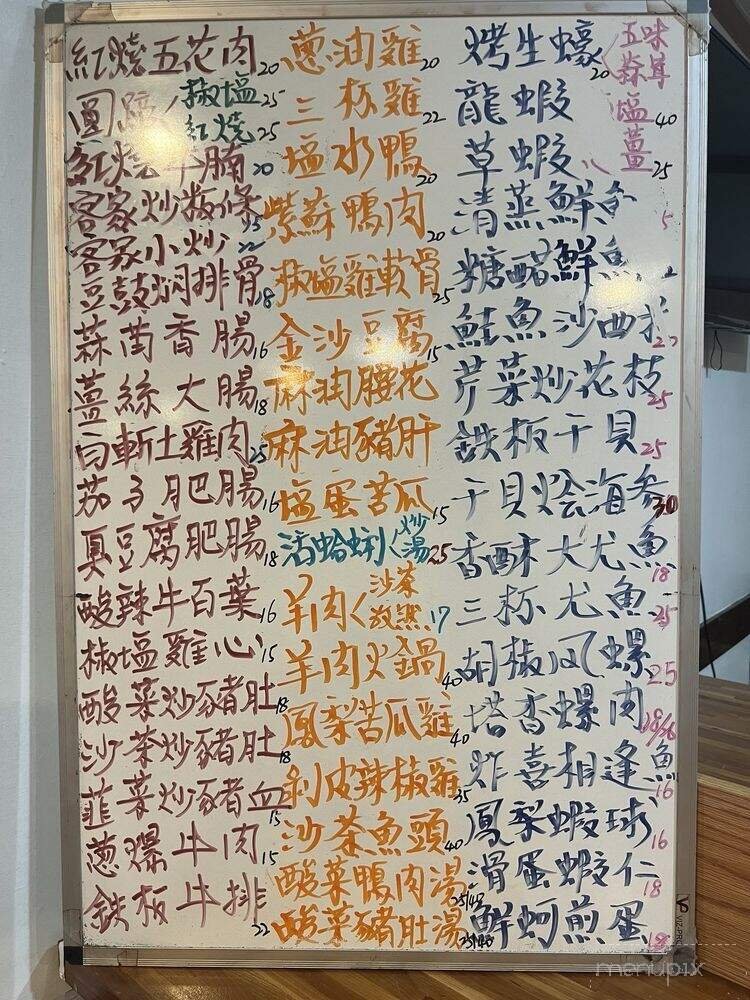 紅燒五花肉20
圓蹄 椒塩25
紅燒25
紅燒牛腩20
客家炒粄條15
客家小炒22
豆鼓焖排骨18
蒜苗香腸16
薑絲大腸18
白斬土雞肉25
茄子肥腸16
臭豆腐肥腸18
酸辣牛百葉16
椒塩雞心15
酸菜炒豬肚18
沙茶炒豬肚18
韮菜炒豬血15
葱爆牛肉15
鉄板牛排22
葱油雞20
三杯雞22
塩水鴨20
紫蘇鴨肉20
椒塩雞軟骨25
金沙豆腐15
麻油腰花
麻油豬肝
塩蛋苦瓜15
活蛤蜊 炒 湯25
羊肉 沙茶 孜然17
羊肉火鍋40
鳳梨苦瓜雞40
剁皮辣椒雞35
沙茶魚頭40
酸菜鴨肉湯
酸菜豬肚湯
烤生蠔20 五味 蒜茸
龍蝦 塩40
草蝦 薑25
清蒸鮮魚
糖醋鮮魚
鮭魚沙西
芹菜炒花枝25
鉄板干貝25
干貝烩海參30
香酥大尤魚18
三杯尤魚25
胡椒风螺25
塔香螺肉
炸喜相逢魚16
鳳梨蝦球16
滑蛋蝦仁18
鮮蚵煎蛋18
menupix